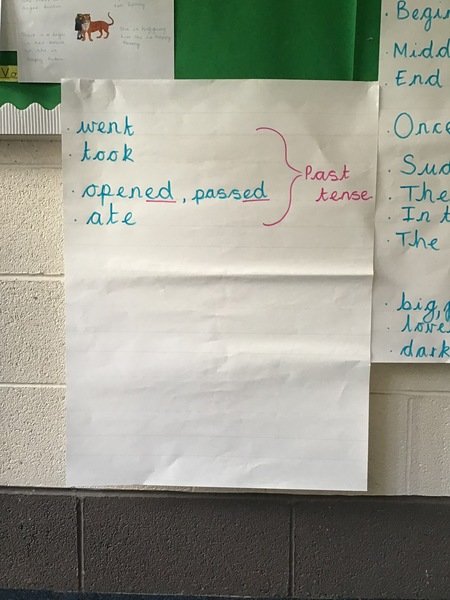 · went
· took
· opened, passed
· ate
Past
tense
Va
· Begi
· Midd
· End
· Once
· Sud
· The
· In t
· The
· big,
· love
· dark